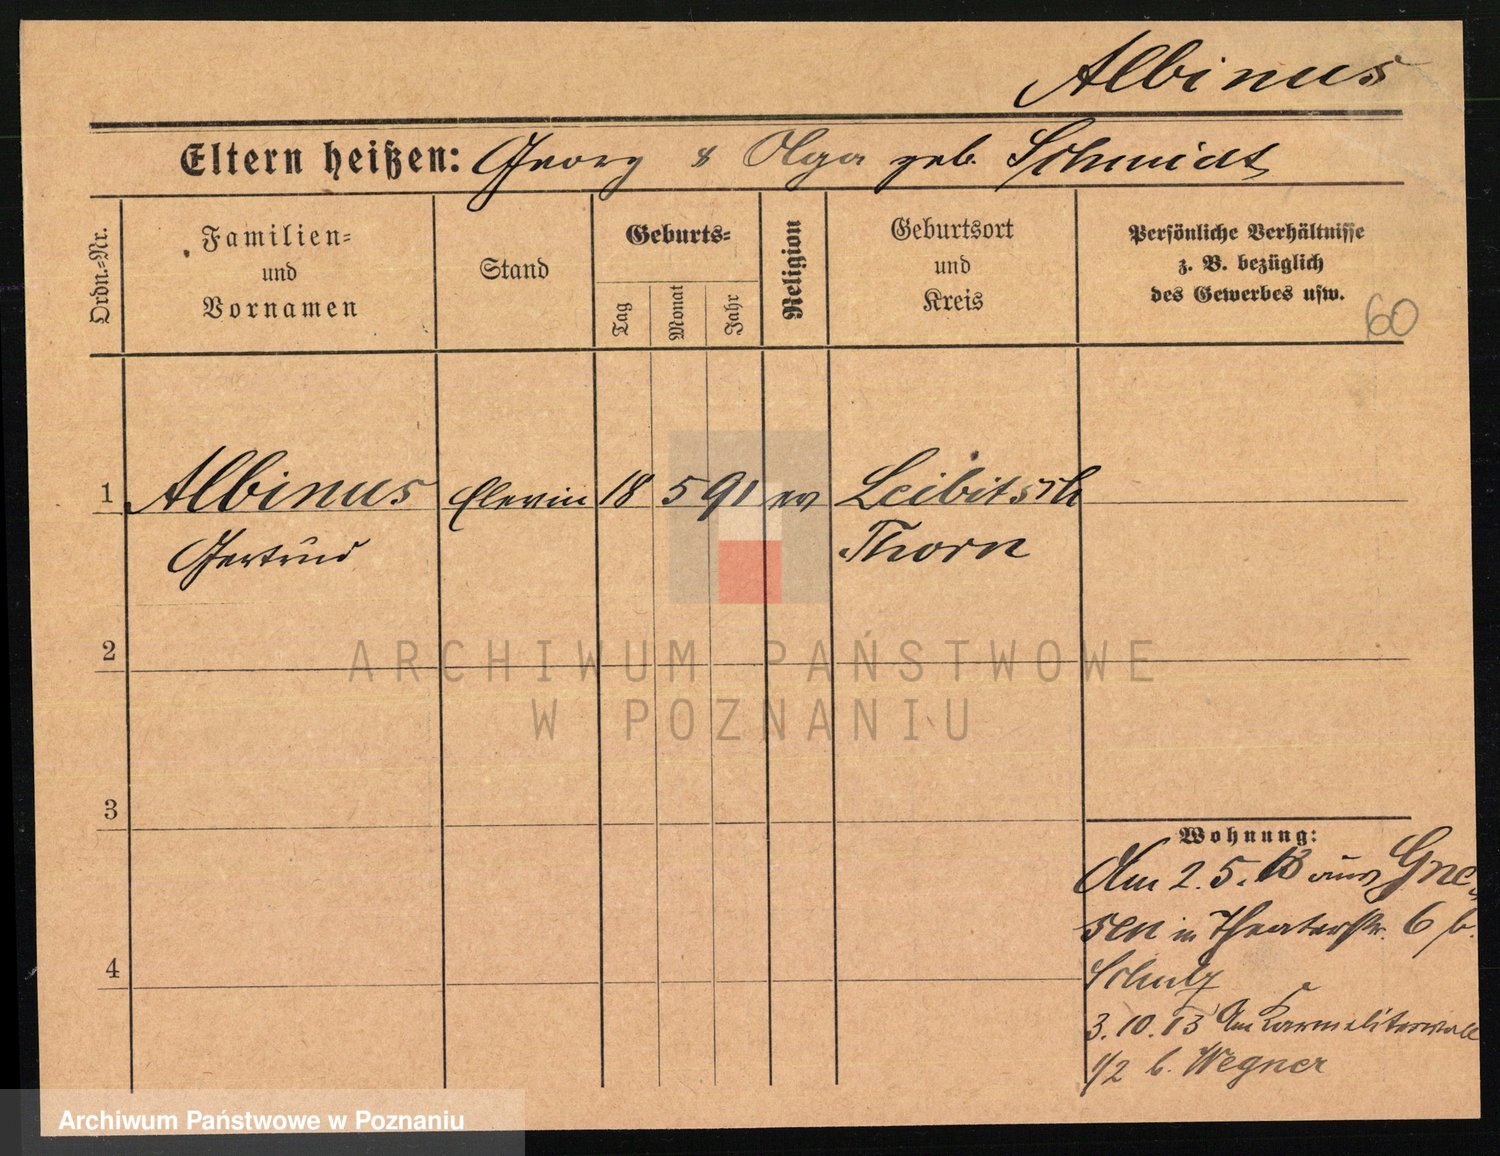 Albinus
Eltern heißen: Georg & Olga geb. Schmidt
Ordn.-Nr.
Familien-
und
Vornamen
Stand
Geburts-
Tag
Monat
Jahr
Religion
Geburtsort
und
Kreis
Persönliche Verhältnisse
z. B. bezüglich
des Gewerbes usw.
60
1 Albinus Elevin 18 5 91 ev Leibitsch
Gertrud Thorn
2
ARCHIWUM PAŃSTWOWE
W POZNANIU
3
Wohnung:
Am 2. 5. 13 aus Gne-
sen in Theaterstr. 6 b.
4
Schulz
3. 10. 13 Am Karmeliterwall
1/2 b. Wegner
Archiwum Państwowe w Poznaniu